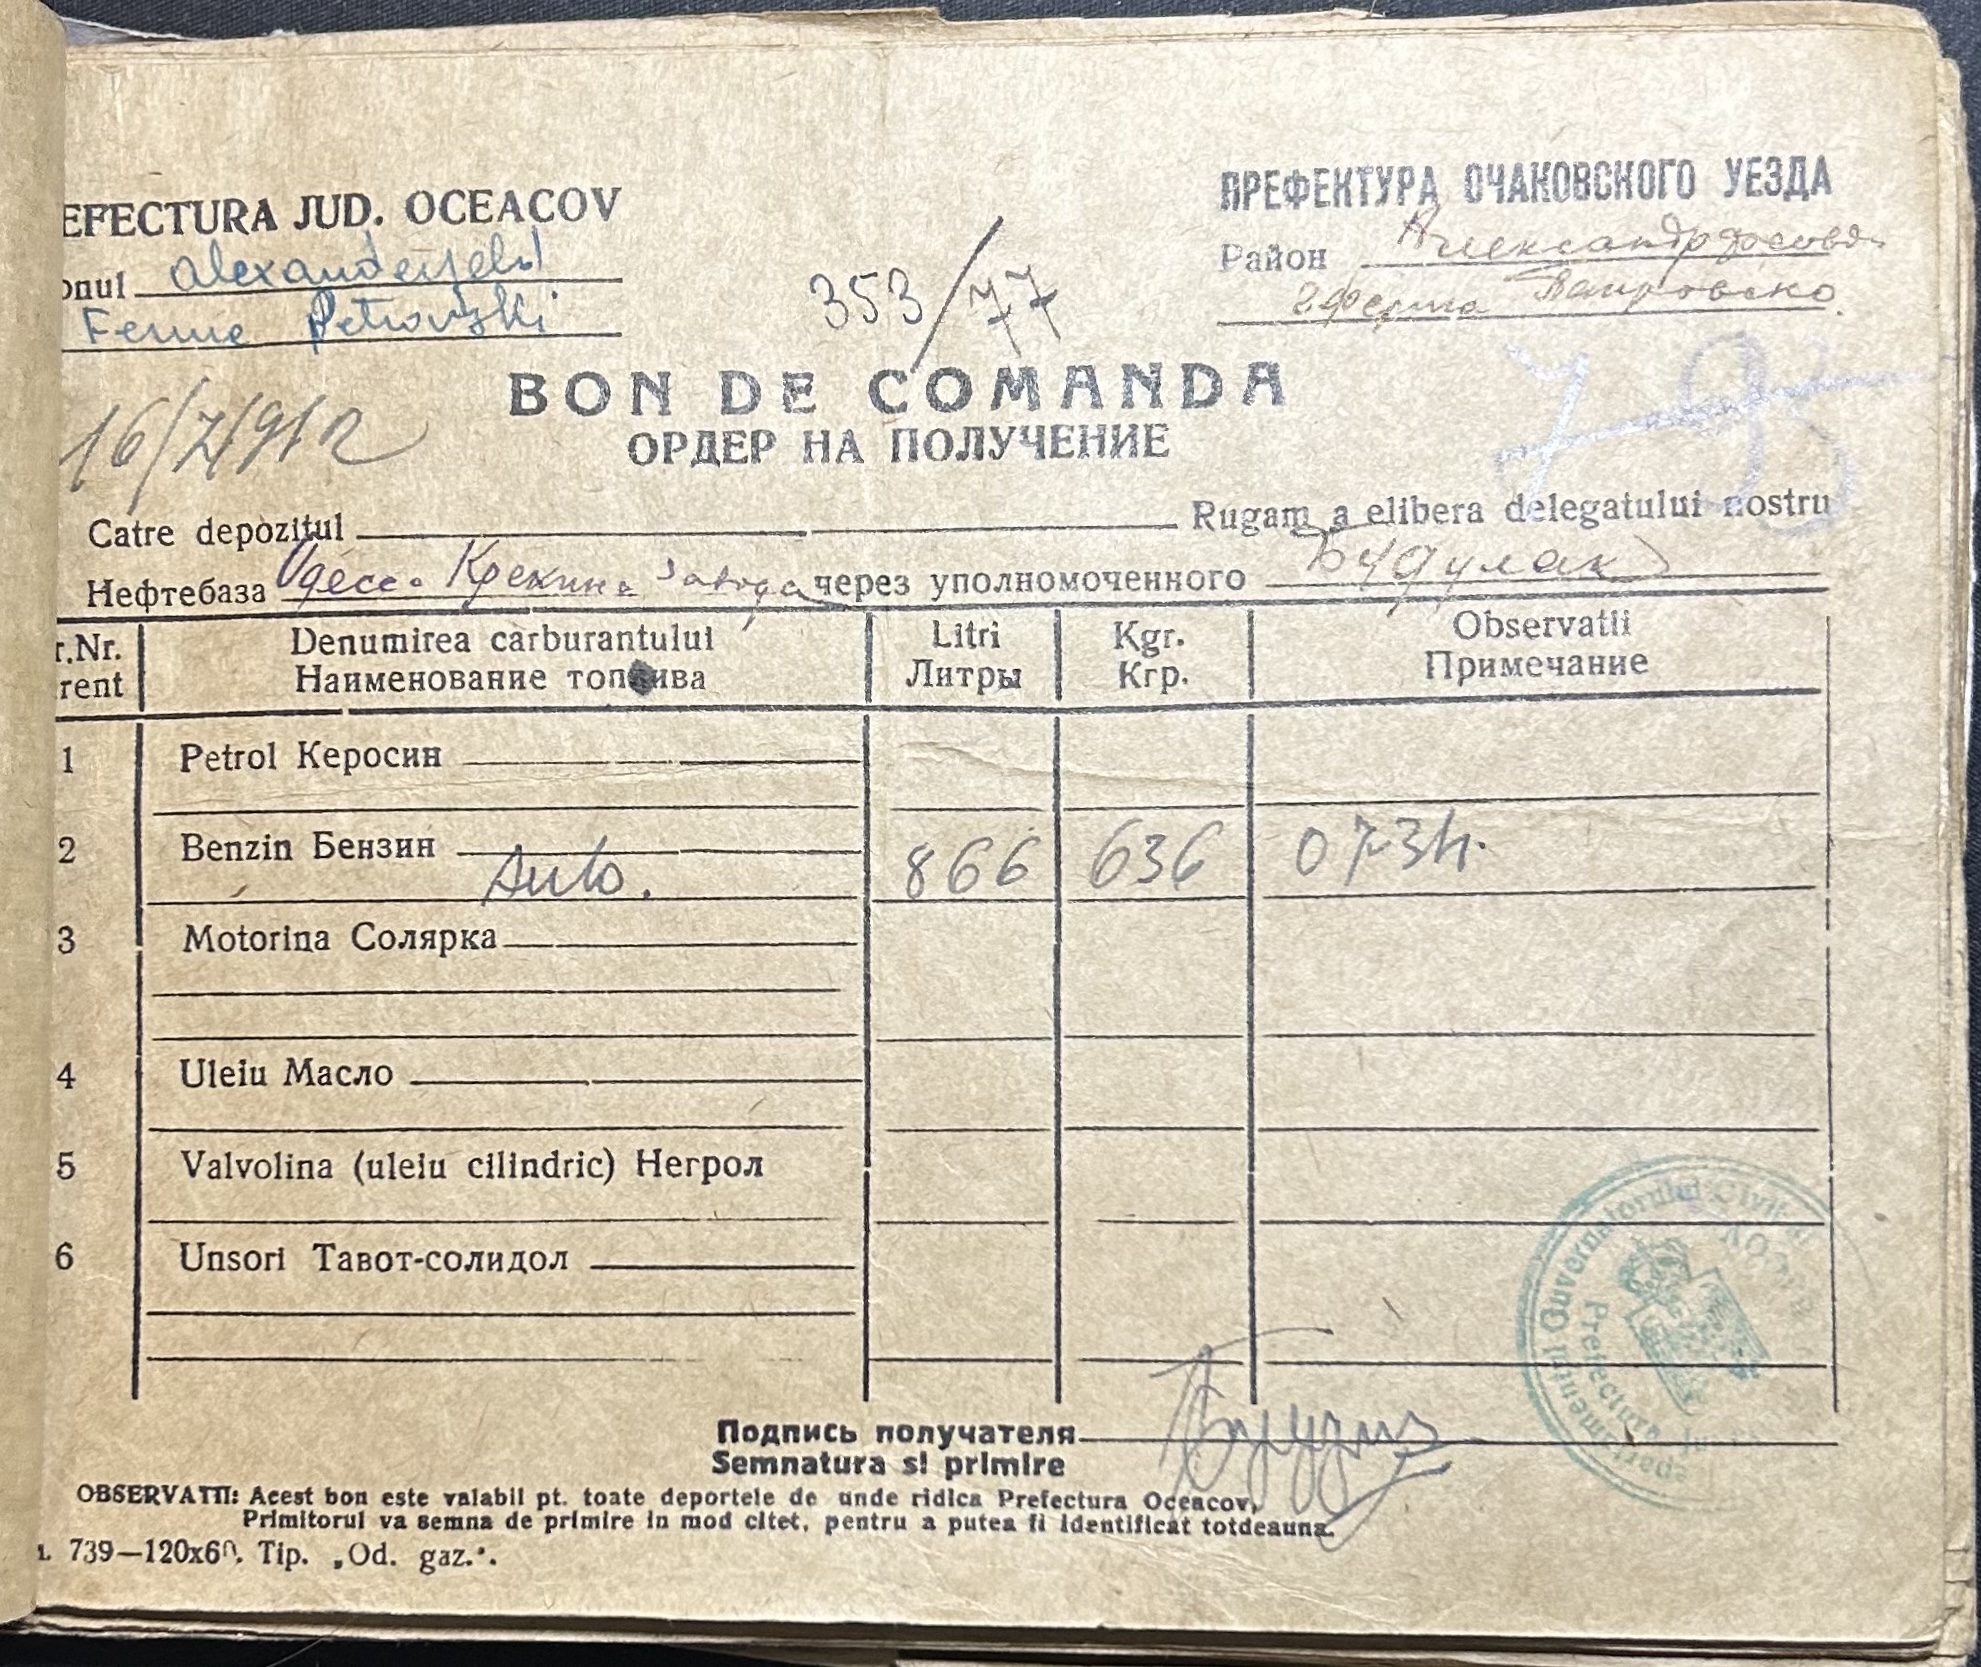 EFECTURA JUD. OCEACOV
onul Alexanderfeld
Ferme Petrovski
353/77
ПРЕФЕКТУРА ОЧАКОВСКОГО УЕЗДА
Район
BON DE COMANDA
ОРДЕР НА ПОЛУЧЕНИЕ
Catre depozitul Rugam a elibera delegatului nostru
Нефтебаза Одесса Крекинг завода через уполномоченного Будулак
r.Nr. Denumirea carburantului Litri Kgr. Observatii
rent Наименование топлива Литры Кгр. Примечание
1 Petrol Керосин
2 Benzin Бензин Auto. 866 636 0734.
3 Motorina Солярка
4 Uleiu Масло
5 Valvolina (uleiu cilindric) Негрол
6 Unsori Тавот-солидол
Guvernatorului Civil
Prefectura
Подпись получателя
Semnatura si primire
OBSERVATII: Acest bon este valabil pt. toate deportele de unde ridica Prefectura Oceacov,
Primitorul va semna de primire in mod citet, pentru a putea fi identificat totdeauna.
739—120x60. Tip. „Od. gaz.".